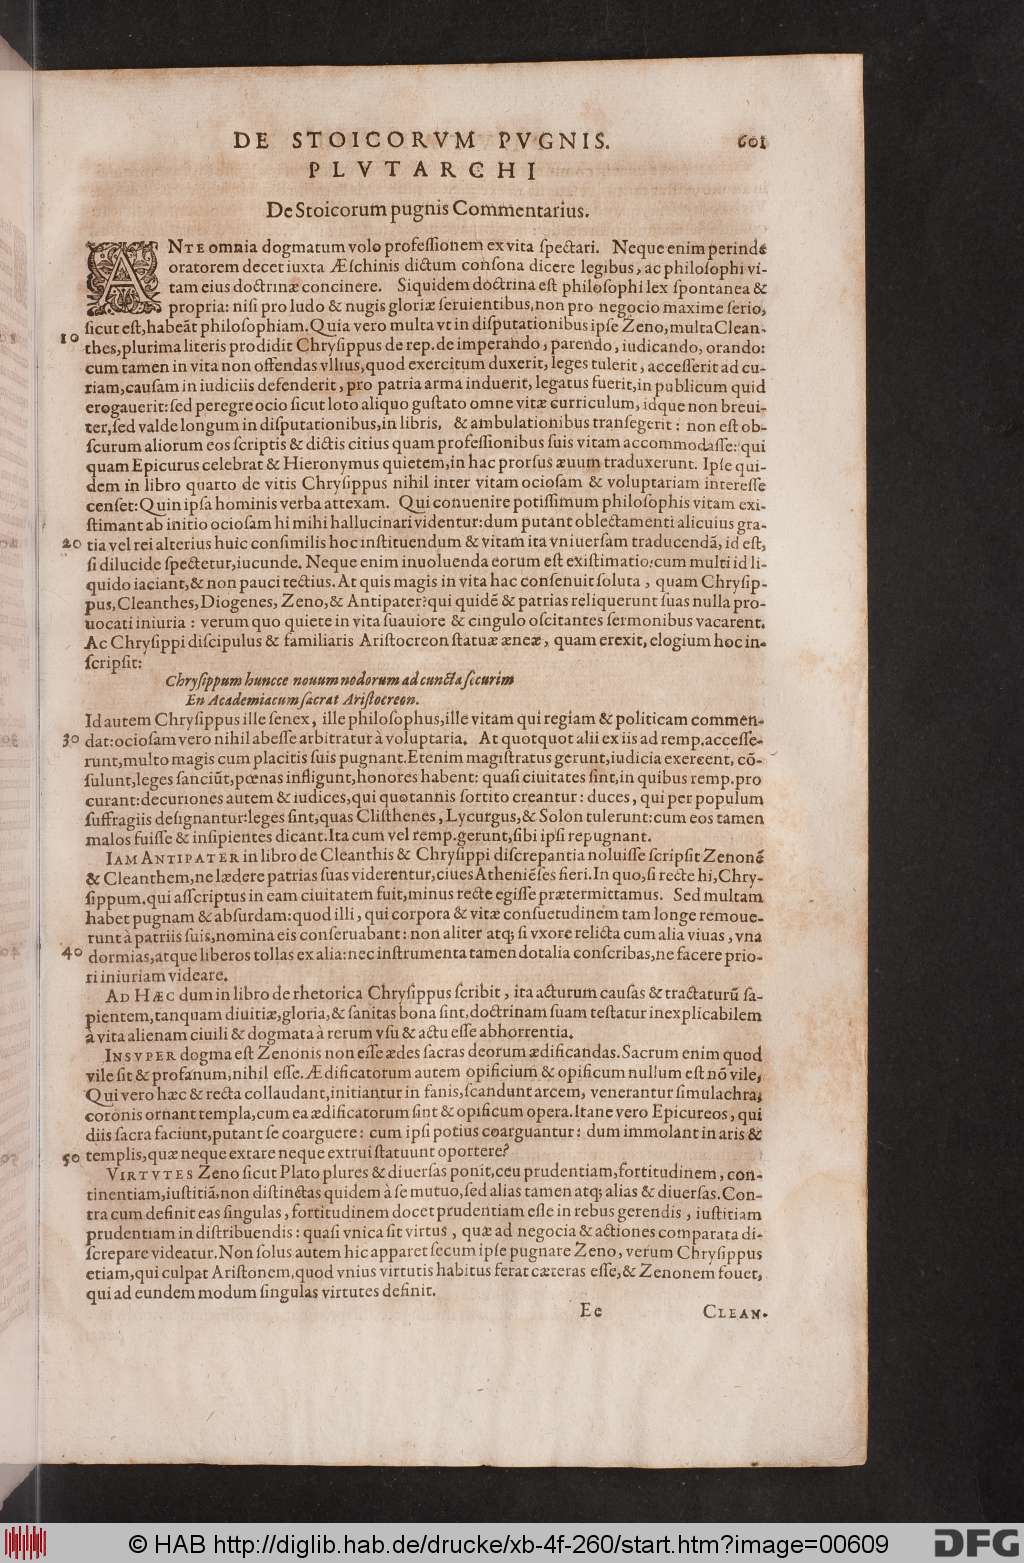 DE STOICORVM PVGNIS. 601
PLVTARCHI
De Stoicorum pugnis Commentarius.
ANTE omnia dogmatum volo professionem ex vita spectari. Neque enim perinde
oratorem decet iuxta Æschinis dictum consona dicere legibus, ac philosophi vi-
tam eius doctrinæ concinere. Siquidem doctrina est philosophi lex spontanea &
propria: nisi pro ludo & nugis gloriæ seruientibus, non pro negocio maxime serio,
sicut est, habeãt philosophiam. Quia vero multa vt in disputationibus ipse Zeno, multa Clean-
10 thes, plurima literis prodidit Chrysippus de rep. de imperando, parendo, iudicando, orando:
cum tamen in vita non offendas vllius, quod exercitum duxerit, leges tulerit, accesserit ad cu-
riam, causam in iudiciis defenderit, pro patria arma induerit, legatus fuerit, in publicum quid
erogauerit: sed peregre ocio sicut loto aliquo gustato omne vitæ curriculum, idque non breui-
ter, sed valde longum in disputationibus, in libris, & ambulationibus transegerit: non est ob-
scurum aliorum eos scriptis & dictis citius quam professionibus suis vitam accommodasse: qui
quam Epicurus celebrat & Hieronymus quietem, in hac prorsus æuum traduxerunt. Ipse qui-
dem in libro quarto de vitis Chrysippus nihil inter vitam ociosam & voluptariam interesse
censet: Quin ipsa hominis verba attexam. Qui conuenire potissimum philosophis vitam exi-
stimant ab initio ociosam hi mihi hallucinari videntur: dum putant oblectamenti alicuius gra-
20 tia vel rei alterius huic consimilis hoc instituendum & vitam ita vniuersam traducendã, id est,
si dilucide spectetur, iucunde. Neque enim inuoluenda eorum est existimatio: cum multi id li-
quido iaciant, & non pauci tectius. At quis magis in vita hac consenuit soluta, quam Chrysip-
pus, Cleanthes, Diogenes, Zeno, & Antipater? qui quidẽ & patrias reliquerunt suas nulla pro-
uocati iniuria: verum quo quiete in vita suauiore & cingulo oscitantes sermonibus vacarent.
Ac Chrysippi discipulus & familiaris Aristocreon statuæ æneæ, quam erexit, elogium hoc in-
scripsit:
Chrysippum huncce nouum nodorum ad cuncta securim
En Academiacum sacrat Aristocreon.
Id autem Chrysippus ille senex, ille philosophus, ille vitam qui regiam & politicam commen-
30 dat: ociosam vero nihil abesse arbitratur à voluptaria. At quotquot alii ex iis ad remp. accesse-
runt, multo magis cum placitis suis pugnant. Etenim magistratus gerunt, iudicia exercent, cõ-
sulunt, leges sanciũt, pœnas infligunt, honores habent: quasi ciuitates sint, in quibus remp. pro
curant: decuriones autem & iudices, qui quotannis sortito creantur: duces, qui per populum
suffragiis designantur: leges sint, quas Clisthenes, Lycurgus, & Solon tulerunt: cum eos tamen
malos fuisse & insipientes dicant. Ita cum vel remp. gerunt, sibi ipsi repugnant.
IAM ANTIPATER in libro de Cleanthis & Chrysippi discrepantia noluisse scripsit Zenonẽ
& Cleanthem, ne lædere patrias suas viderentur, ciues Atheniẽses fieri. In quo, si recte hi, Chry-
sippum, qui asscriptus in eam ciuitatem fuit, minus recte egisse prætermittamus. Sed multam
habet pugnam & absurdam: quod illi, qui corpora & vitæ consuetudinem tam longe remoue-
runt à patriis suis, nomina eis conseruabant: non aliter atq; si vxore relicta cum alia viuas, vna
40 dormias, atque liberos tollas ex alia: nec instrumenta tamen dotalia conscribas, ne facere prio-
ri iniuriam videare.
AD HÆC dum in libro de rhetorica Chrysippus scribit, ita acturum causas & tractaturũ sa-
pientem, tanquam diuitiæ, gloria, & sanitas bona sint, doctrinam suam testatur inexplicabilem
à vita alienam ciuili & dogmata à rerum vsu & actu esse abhorrentia.
INSVPER dogma est Zenonis non esse ædes sacras deorum ædificandas. Sacrum enim quod
vile sit & profanum, nihil esse. Ædificatorum autem opificium & opificum nullum est nõ vile,
Qui vero hæc & recta collaudant, initiantur in fanis, scandunt arcem, venerantur simulachra,
coronis ornant templa, cum ea ædificatorum sint & opificum opera. Itane vero Epicureos, qui
diis sacra faciunt, putant se coarguere: cum ipsi potius coarguantur: dum immolant in aris &
50 templis, quæ neque extare neque extrui statuunt oportere?
VIRTVTES Zeno sicut Plato plures & diuersas ponit, ceu prudentiam, fortitudinem, con-
tinentiam, iustitiã, non distinctas quidem à se mutuo, sed alias tamen atq; alias & diuersas. Con-
tra cum definit eas singulas, fortitudinem docet prudentiam esse in rebus gerendis, iustitiam
prudentiam in distribuendis: quasi vnica sit virtus, quæ ad negocia & actiones comparata di-
screpare videatur. Non solus autem hic apparet secum ipse pugnare Zeno, verum Chrysippus
etiam, qui culpat Aristonem, quod vnius virtutis habitus ferat cæteras esse, & Zenonem fouet,
qui ad eundem modum singulas virtutes definit.
Ee CLEAN-
© HAB http://diglib.hab.de/drucke/xb-4f-260/start.htm?image=00609
DFG